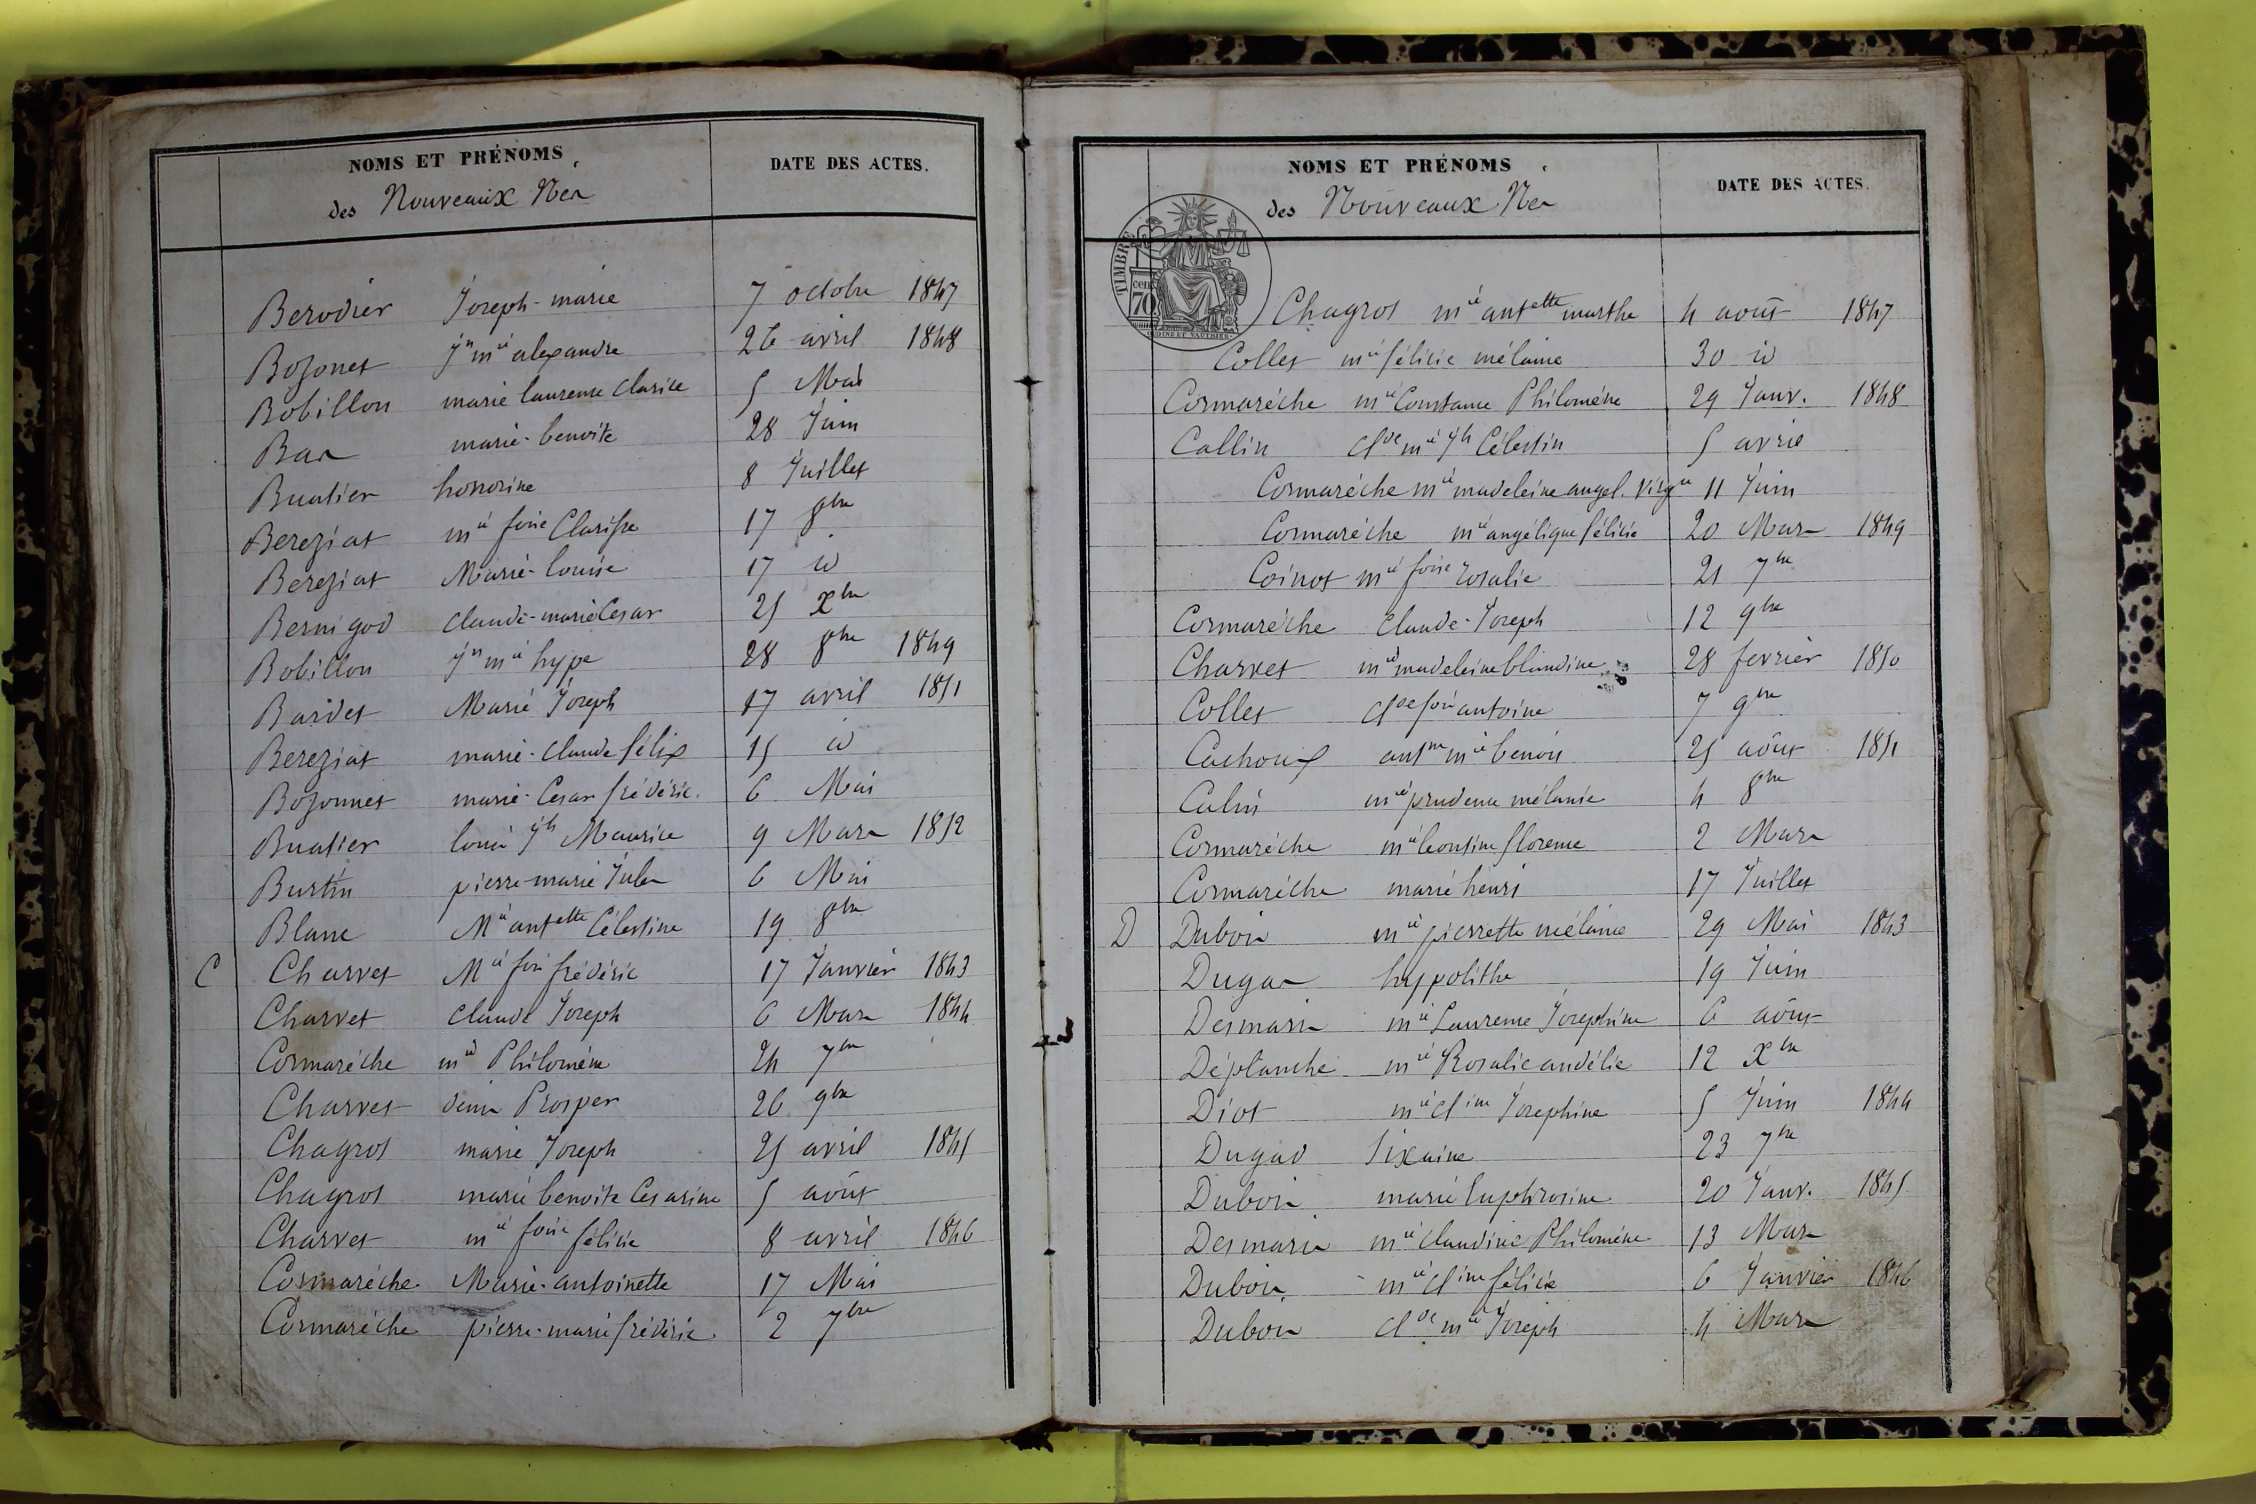 NOMS ET PRÉNOMS
DATE DES ACTES.
des Nouveaux Nés
Berodier Joseph-marie 7 octobre 1847
Bozonet Jn mie alexandre 26 avril 1848
Bobillon marie laurence Clarice 5 Mai
Bas marie-benoite 28 Juin
Buatier honorine 8 Juillet
Bereziat mie foise Clarisse 17 8bre
Bereziat Marie-louise 17 id
Bernigod claude-marie Cesar 25 xbre
Bobillon Jn mie hype 28 8bre 1849
Bardet Marie Joseph 17 avril 1851
Bereziat marie-claude félix 15 id
Bozonnet marie-Cesar frédéric 6 Mai
Buatier louis Jh Maurice 9 Mars 1852
Burtin pierre-marie Jules 6 Mai
Blanc Mie antette Célestine 19 8bre
C Charvet Mie fois frédéric 17 Janvier 1843
Charvet claude Joseph 6 Mars 1844
Cormarèche mie Philomène 24 7bre
Charvet denis Prosper 26 9bre
Chagros marie Joseph 25 avril 1845
Chagros marie benoite Cesarine 5 août
Charvet mie foise félicie 8 avril 1846
Cormarèche Marie-antoinette 17 Mai
Cormarèche pierre-marie frédéric 2 7bre
NOMS ET PRÉNOMS
DATE DES ACTES.
des Nouveaux Nés
TIMBRE
cen
70
Chagros mie antette marthe 4 août 1847
Collet mie félicie mélanie 30 id
Cormarèche mie Constance Philomène 29 Janv. 1848
Collin Clde mie Jh Célestin 5 avril
Cormarèche mie madeleine angel. Virgie 11 Juin
Cormarèche mie angélique félicie 20 Mars 1849
Coinot mie foise rosalie 21 7bre
Cormarèche claude-Joseph 12 9bre
Charvet mie madeleine blandine 28 fevrier 1850
Collet Clde fois antoine 7 9bre
Cachoux antne mie benoit 25 août 1851
mie prudence mélanie 4 8bre
Cormarèche mie leontine florence 2 Mars
Cormarèche marie henri 17 Juillet
D Dubois mie pierrette mélanie 29 Mai 1843
Dugas hyppolithe 19 Juin
Desmaris mie Laurence Josephine 6 août
Déplanche mie Rosalie andélie 12 xbre
Diot mie Cline Josephine 5 Juin 1844
Dugad Sixaine 23 7bre
Dubois marie Euphrosine 20 Janv. 1845
Desmaris mie claudine Philomène 13 Mars
Dubois mie Cline félicie 6 Janvier 1846
Dubois Clde mie Joseph 4 Mars